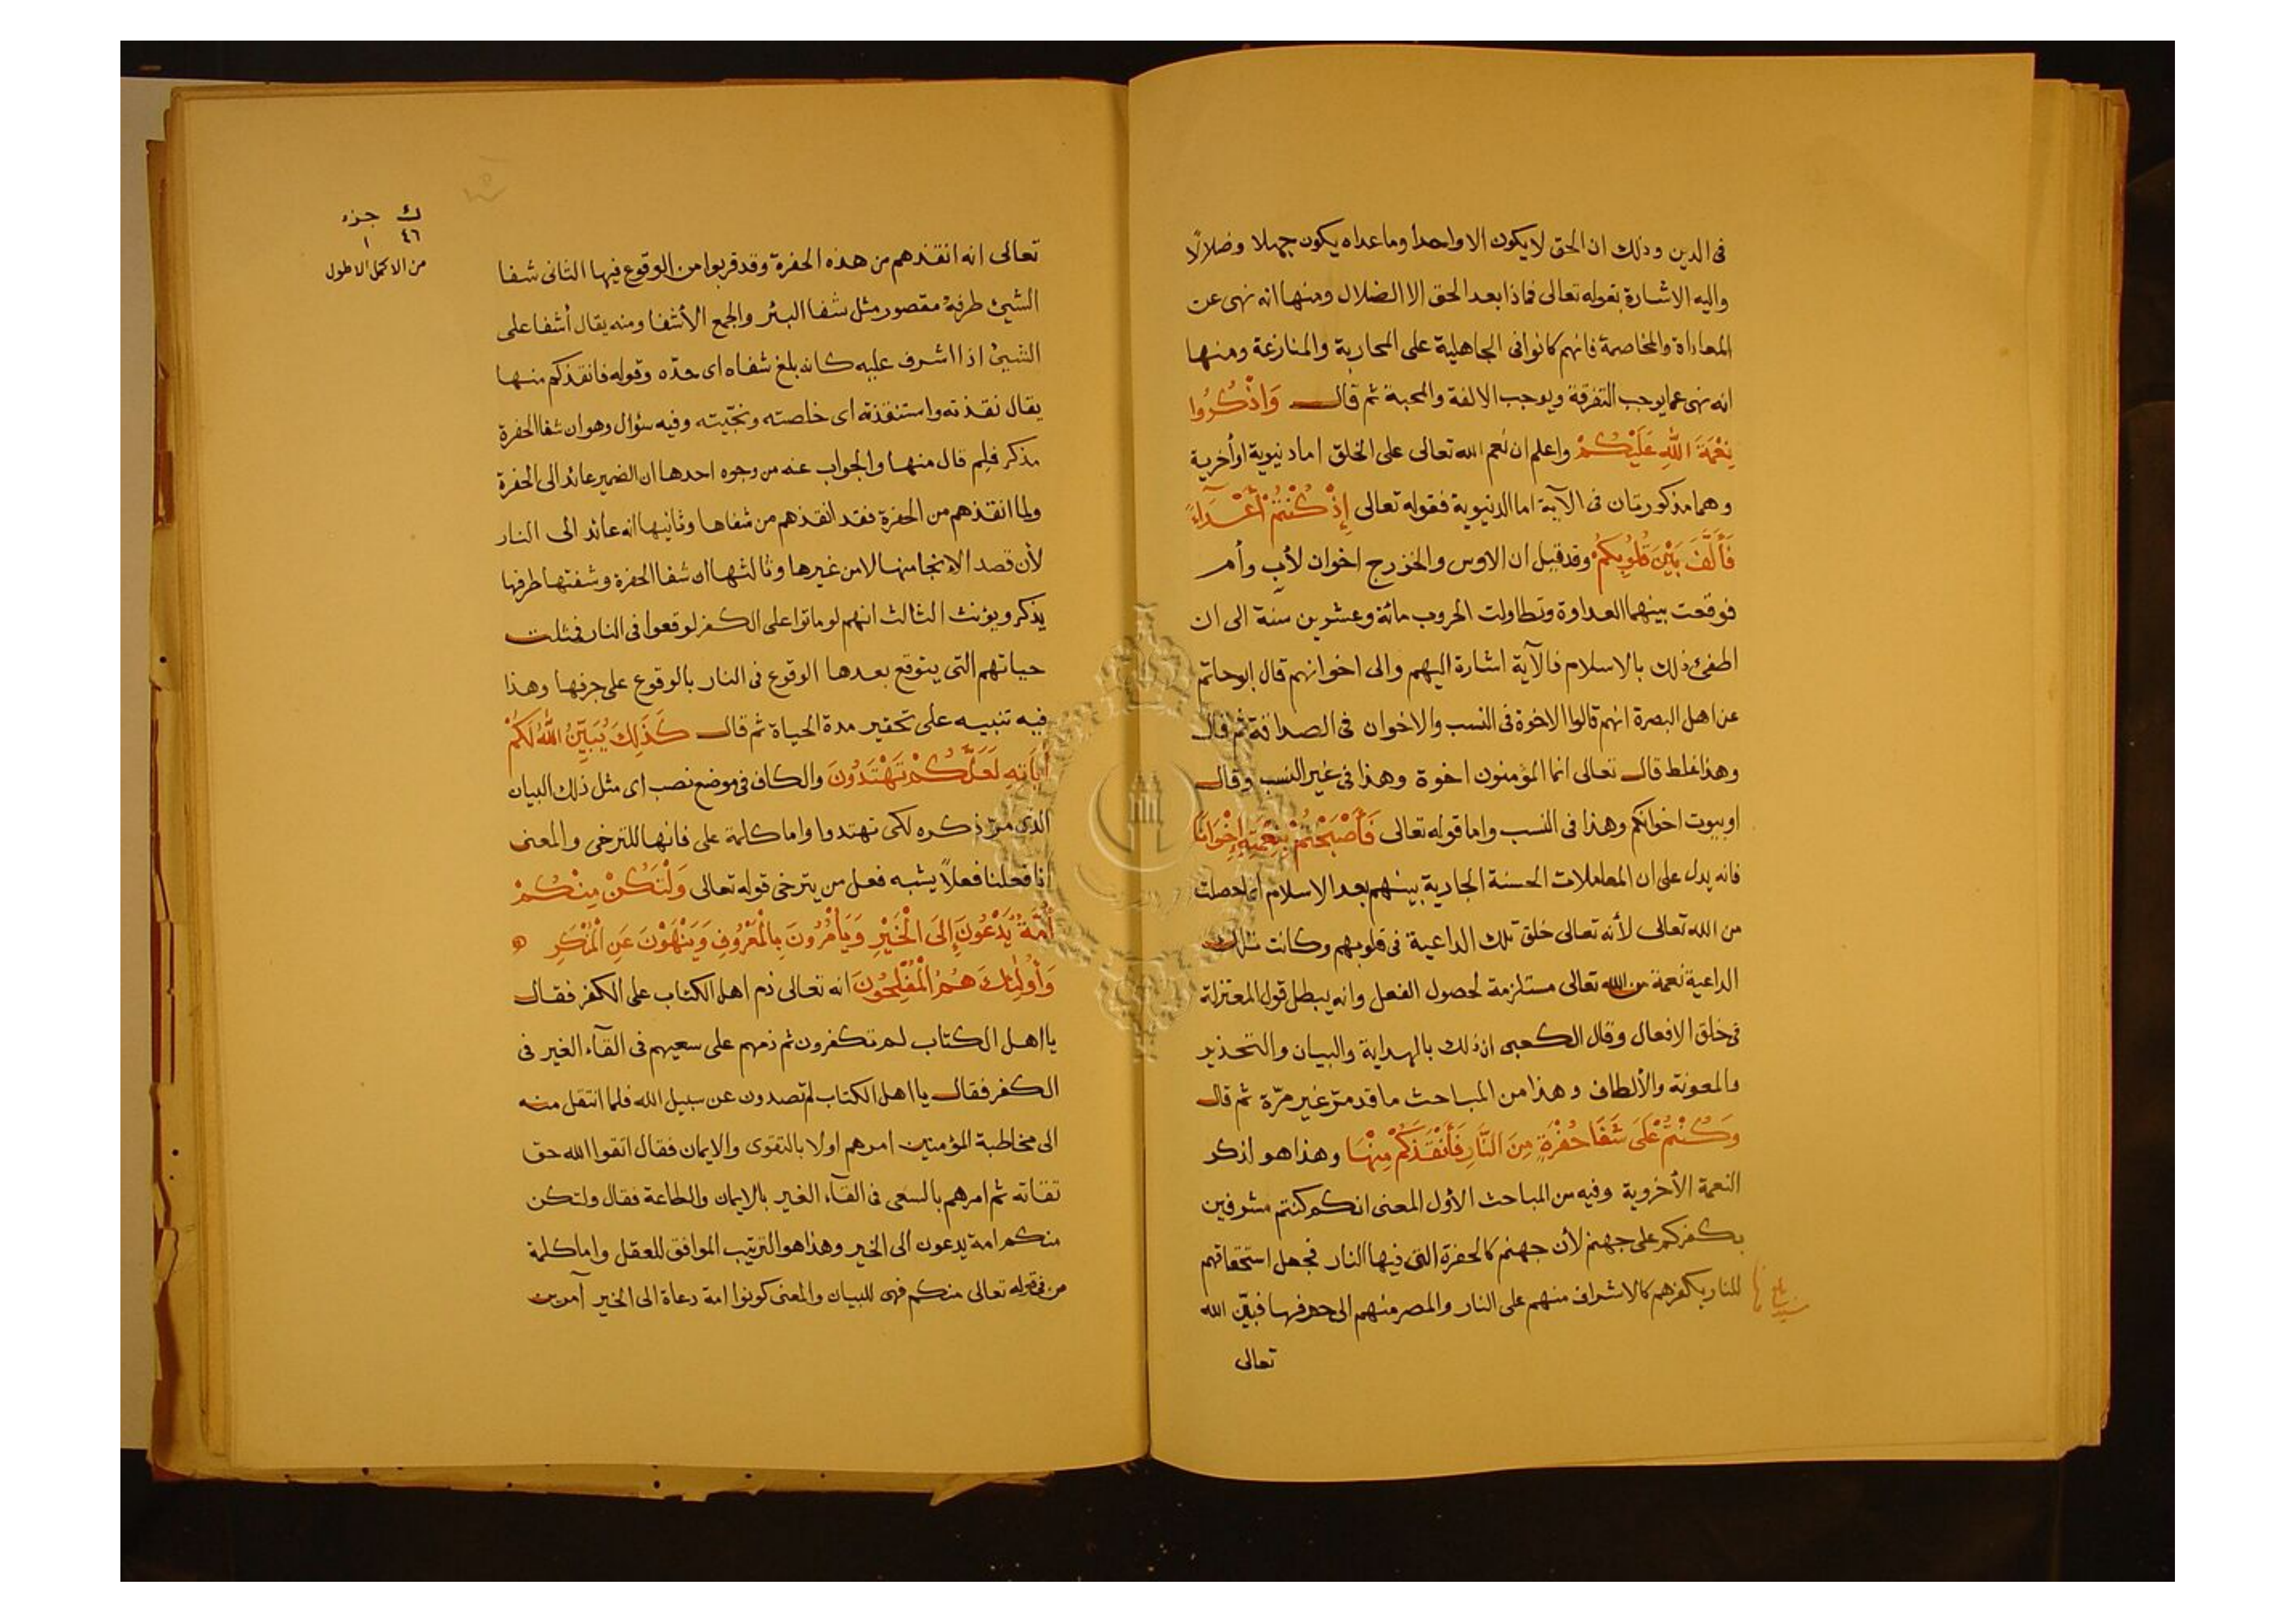 فى الدين وذلك ان الحق لا يكون الا واحدا وما عداه يكون جهلا وضلالًا
واليه الاشارة بقوله تعالى فماذا بعد الحق الا الضلال ومنها انه نهى عن
المعاداة والمخاصمة فانهم كانوا فى الجاهلية على المحاربة والمنازعة ومنها
انه نهى عما يوجب التفرقة ويوجب الالفة والمحبة ثم قال وَاذْكُرُوا
نِعْمَةَ اللّٰهِ عَلَيْكُمْ واعلم ان نعم الله تعالى على الخلق اما دنيوية او أخرية
وهما مذكورتان فى الآية اما الدنيوية فقوله تعالى إِذْ كُنْتُمْ أَعْدَآءً
فَأَلَّفَ بَيْنَ قُلُوبِكُمْ وقد قيل ان الاوس والخزرج اخوان لأبٍ وأم
فوقعت بينهما العداوة وتطاولت الحروب مائة وعشرين سنة الى ان
اطفئ ذلك بالاسلام فالآية اشارة اليهم والى اخوانهم قال ابو حاتم
عن اهل البصرة انهم قالوا الاخوة فى النسب والاخوان فى الصداقة ثم قال
وهذا غلط قال تعالى انما المؤمنون اخوة وهذا فى غير النسب وقال
او بيوت اخوانكم وهذا فى النسب واما قوله تعالى فَأَصْبَحْتُمْ بِنِعْمَتِهِ إِخْوَانًا
فانه يدل على ان المعاملات الحسنة الجارية بينهم بعد الاسلام انما حصلت
من الله تعالى لأنه تعالى خلق تلك الداعية فى قلوبهم وكانت تلك
الداعية نعمة من الله تعالى مستلزمة لحصول الفعل وانه يبطل قول المعتزلة
فى خلق الافعال وقال الكعبى ان ذلك بالهداية والبيان والتحذير
والمعونة والألطاف وهذا من المباحث ما قد مرّ غير مرّة ثم قال
وَكُنْتُمْ عَلَى شَفَا حُفْرَةٍ مِنَ النَّارِ فَأَنْقَذَكُمْ مِنْهَا وهذا هو اذكر
النعمة الأخروية وفيه من المباحث الأول المعنى انكم كنتم مشرفين
بكفركم على جهنم لأن جهنم كالحفرة التى فيها النار فجعل استحقاقهم
للنار بكفرهم كالاشراف منهم على النار والمصر منهم الى حفرفها فبيّن الله
تعالى
ك جزء
٤٦ ١
من الاكمل الاطول
تعالى انه انقذهم من هذه الحفرة وقد قربوا من الوقوع فيها الثانى شفا
الشيئ طرفه مقصور مثل شفا البئر والجمع الأشفا ومنه يقال أشفا على
الشيئ اذا اشرف عليه كانه بلغ شفاه اى حدّه وقوله فانقذكم منها
يقال نقذته واستنقذته اى خلصته ونجّيته وفيه سؤال وهو ان شفا الحفرة
مذكر فلم قال منها والجواب عنه من وجوه احدها ان الضمير عائد الى الحفرة
ولما انقذهم من الحفرة فقد انقذهم من شفاها وثانيها انه عائد الى النار
لأن قصد الانجا منها لا من غيرها وثالثها ان شفا الحفرة وشفتها طرفها
يذكر ويؤنث الثالث انهم لو ماتوا على الكفر لوقعوا فى النار فمثلت
حياتهم التى يتوقع بعدها الوقوع فى النار بالوقوع على جرفها وهذا
فيه تنبيه على تحقير مدة الحياة ثم قال كَذَلِكَ يُبَيِّنُ اللّٰهُ لَكُمْ
أيَاتِهِ لَعَلَّكُمْ تَهْتَدُونَ والكاف فى موضع نصب اى مثل ذلك البيان
الذى مرّ ذكره لكى تهتدوا واما كلمة على فانها للترخى والمعنى
انا فعلنا فعلاً يشبه فعل من يترخى قوله تعالى وَلْتَكُنْ مِنْكُمْ
أُمَّةٌ يَدْعُونَ إِلَى الْخَيْرِ وَيَأْمُرُونَ بِالْمَعْرُوفِ وَيَنْهَوْنَ عَنِ الْمُنْكَرِ
وَأُولٰئِكَ هُمُ الْمُفْلِحُونَ انه تعالى ذم اهل الكتاب على الكفر فقال
يا اهل الكتاب لم تكفرون ثم ذمهم على سعيهم فى القآء الغير فى
الكفر فقال يا اهل الكتاب لم تصدون عن سبيل الله فلما انتقل منه
الى مخاطبة المؤمنين امرهم اولا بالتقوى والايمان فقال اتقوا الله حق
تقاته ثم امرهم بالسعى فى القآء الغير بالايمان والطاعة فقال ولتكن
منكم امة يدعون الى الخير وهذا هو الترتيب الموافق للعقل واما كلمة
من فى قوله تعالى منكم فهى للبيان والمعنى كونوا امة دعاة الى الخير آمرين